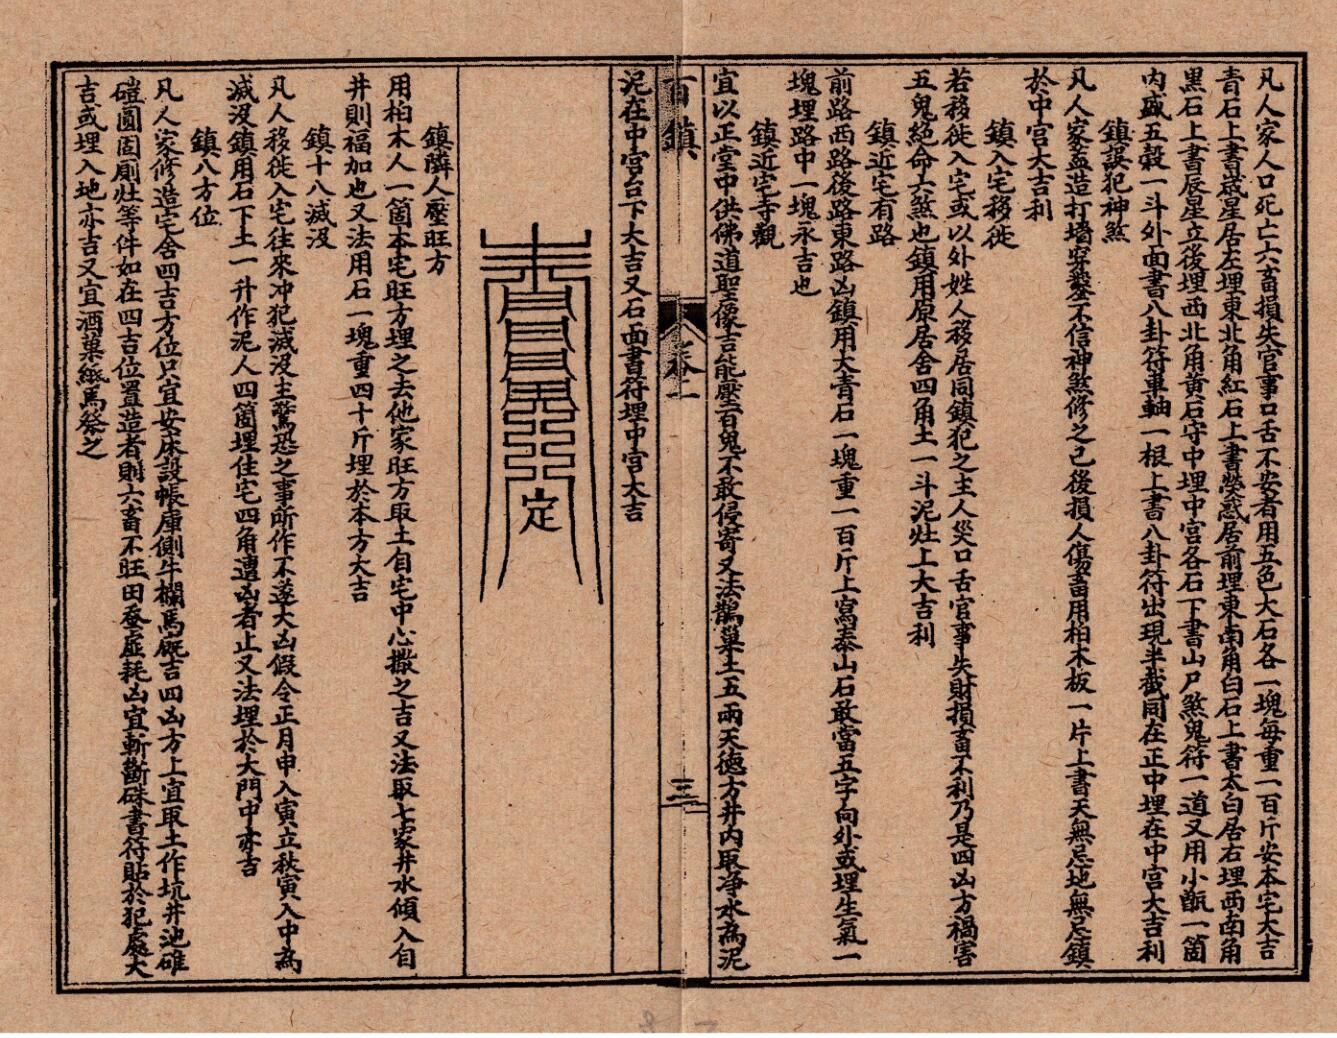 凡人家人口死亡六畜損失官事口舌不安者用五色大石各一塊每重一百斤安本宅大吉
青石上書歲星居左埋東北角紅石上書熒惑居前埋東南角白石上書太白居右埋西南角
黑石上書辰星立後埋西北角黃石守中埋中宮各石下書山尸煞鬼符一道又用小甑一箇
內盛五穀一斗外面書八卦符車軸一根上書八卦符出現半截同在正中埋在中宮大吉利
鎮誤犯神煞
凡人家蓋造打墻穿鑿不信神煞修之已後損人傷畜用柏木板一片上書天無忌地無忌鎮
於中宮大吉利
鎮入宅移徙
若移徙入宅或以外姓人移居同鎮犯之主人災口舌官事失財損畜不利乃是四凶方禍害
五鬼絕命六煞也鎮用原居舍四角土一斗泥灶上大吉利
鎮近宅有路
前路西路後路東路凶鎮用大青石一塊重一百斤上寫泰山石敢當五字向外或埋生氣一
塊埋路中一塊永吉也
鎮近宅寺觀
宜以正堂中供佛道聖像吉能壓百鬼不敢侵寄又法鵲巢土五兩天德方井內取净水為泥
百鎮 卷二 三
泥在中宮台下大吉又石面書符埋中宮大吉
定
鎮隣人壓旺方
用柏木人一箇本宅旺方埋之去他家旺方取土自宅中心撒之吉又法取七家井水傾入自
井則福加也又法用石一塊重四十斤埋於本方大吉
鎮十八滅没
凡人移徙入宅往來冲犯滅没主驚恐之事所作不遂大凶假令正月申入寅立秋寅入中為
滅没鎮用石下土一升作泥人四箇埋住宅四角遭凶者止又法埋於大門中亦吉
鎮八方位
凡人家修造宅舍四吉方位只宜安床設帳庫側牛欄馬厩吉四凶方上宜取土作坑井池碓
磑圊圂厠灶等件如在四吉位置造者則六畜不旺田蚕虛耗凶宜斬斷硃書符貼於犯處大
吉或埋入地亦吉又宜酒菓紙馬祭之